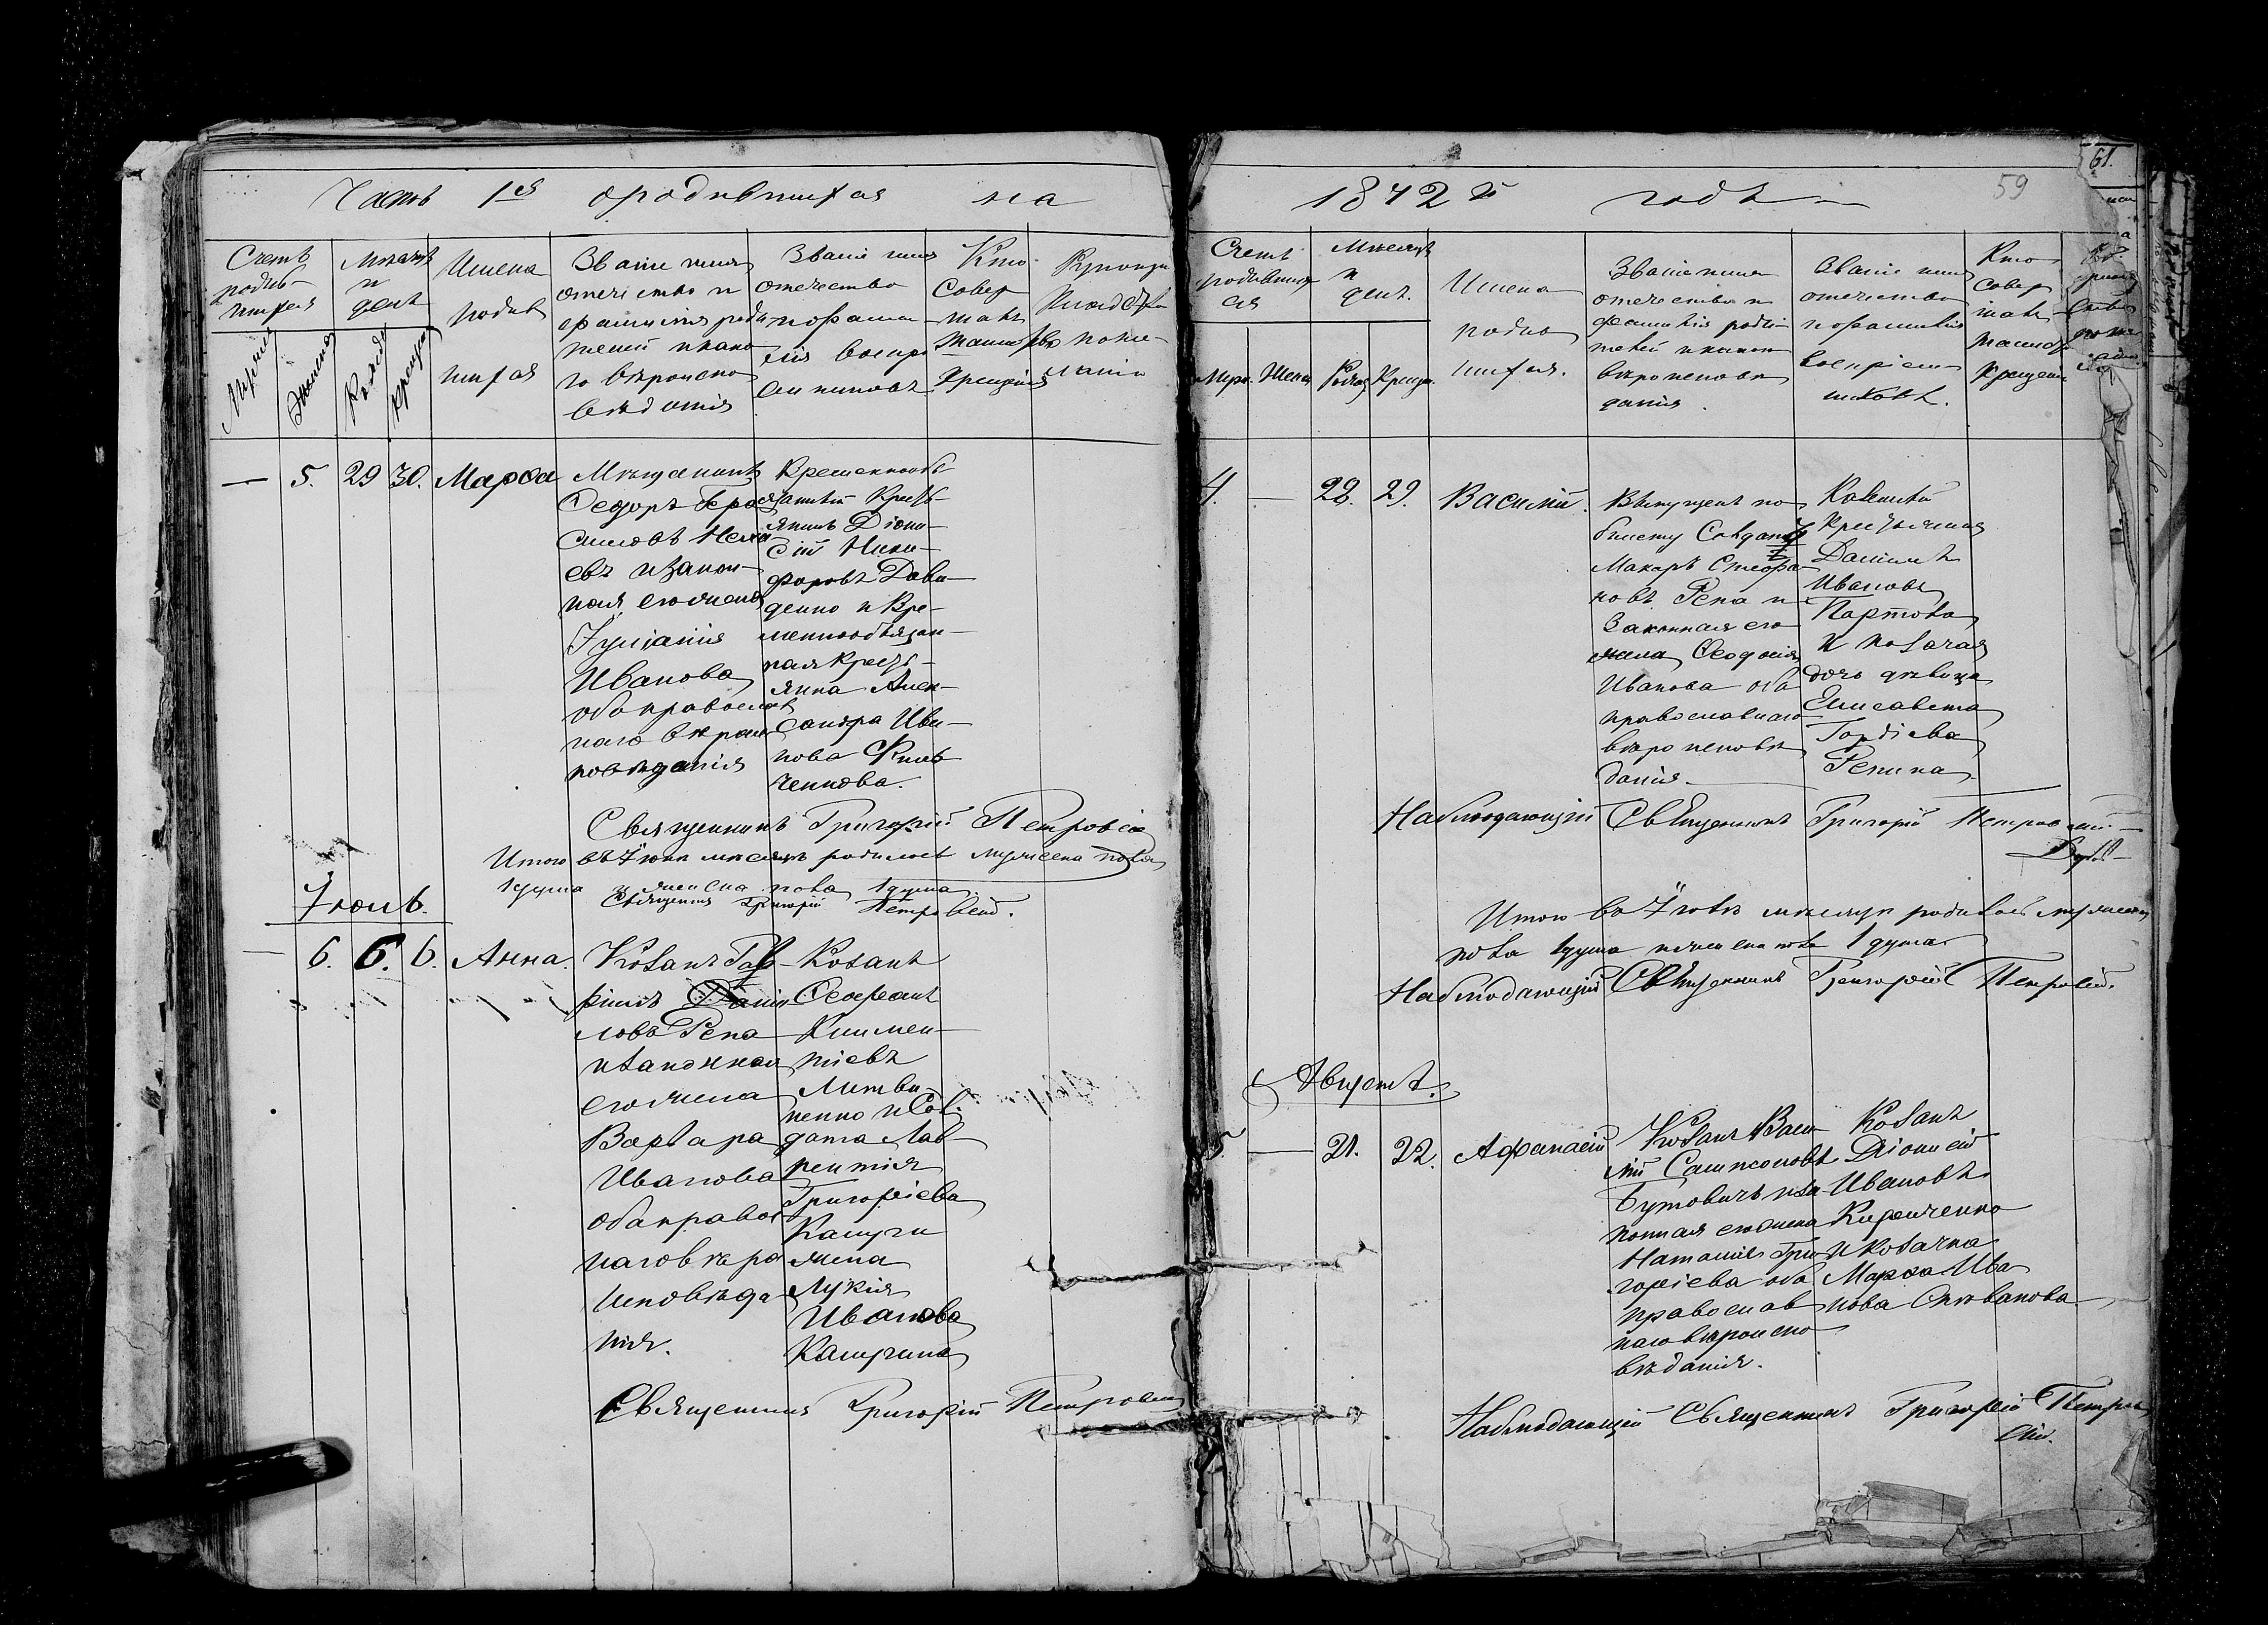 Часть 1я о родившихся на
Счетъ родившихся
Мужеска
Женска
Мѣсяцъ и день
Рожденiя
Крещенiя
Имена
родив
шихся
Званiе имя
отечество и
фамилiя роди
телей и како
го вѣроиспо
вѣданiя
Званiе имя
отечество
и фами
лiя воспрi
емниковъ
Кто
совер
шалъ
таинство
крещенiя
— 5. 29 30. Марѳа
Мѣщанинъ
Ѳедоръ Гера
симовъ
евъ и закон
ная его жена
Iулiанiя
Иванова
оба православ
наго вѣроис
повѣданiя
Временнообя
занный кресть
янинъ Дiони
сiй Ники
форовъ Дави
денко и Вре
меннообязан
ная кресть
янка Алек
сандра Ива
нова
ченкова.
Священникъ Григорiй Петровскiй
Итого въ Iюнѣ мѣсяцѣ родилось мужеска пола
1 душа и женска пола 1 душа
Священникъ Григорiй Петровскiй.
Iюль.
— 6. 6. 6. Анна.
Козакъ Гав
рiилъ Данiи
ловъ Репа
и законная
его жена
Варвара
Иванова
оба правос
наго вѣро
исповѣда
нiя.
Козакъ
Ѳеофанъ
Климен
тiевъ
Литви
ненко и Сол
дата Лав
рентiя
Григорiева
Кашуги
жена
Лукiя
Иванова
Кашугина
Священникъ Григорiй Петровскiй
1842й годъ
59
61.
Счетъ
родивших
ся
Муж. Женск
Мѣсяцъ
и
день.
Рожд Крещ.
Имена
родив
шихся.
Званiе имя
отечество и
фамилiя роди
телей и какого
вѣроисповѣ
данiя.
Званiе имя
отечество
и фамилiя
воспрiем
никовъ.
Кто
совер
шалъ
таинство
крещенiя
4. — 28. 29. Василiй.
Выпущенъ по
билету Солдатъ
Макаръ Стефа
новъ Репа и
законная его
жена Ѳеодосiя
Иванова оба
православнаго
вѣроисповѣ
данiя.
Козачiй
Крестьянинъ
Данiилъ
Ивановъ
Портова
и козачая
дочь дѣвица
Елисавета
Гордiева
Репина.
Наблюдающiй Священникъ Григорiй Петровскiй.
Итого въ Iюлѣ мѣсяцѣ родилось мужеска
пола 1 душа и женска пола 1 душа
Наблюдающiй Священникъ Григорiй Петровскiй.
Августъ.
5. — 21. 22. Афанасiй
Козакъ Васи
лiй Сампсоновъ
Бутовичъ и за
конная его жена
Наталiя Гри
горiева оба
православ
наго вѣроиспо
вѣданiя.
Козакъ
Дiонисiй
Ивановъ
Кириченко
и Козачка
Марѳа Ива
нова
Наблюдающiй Священникъ Григорiй Петров
скiй.